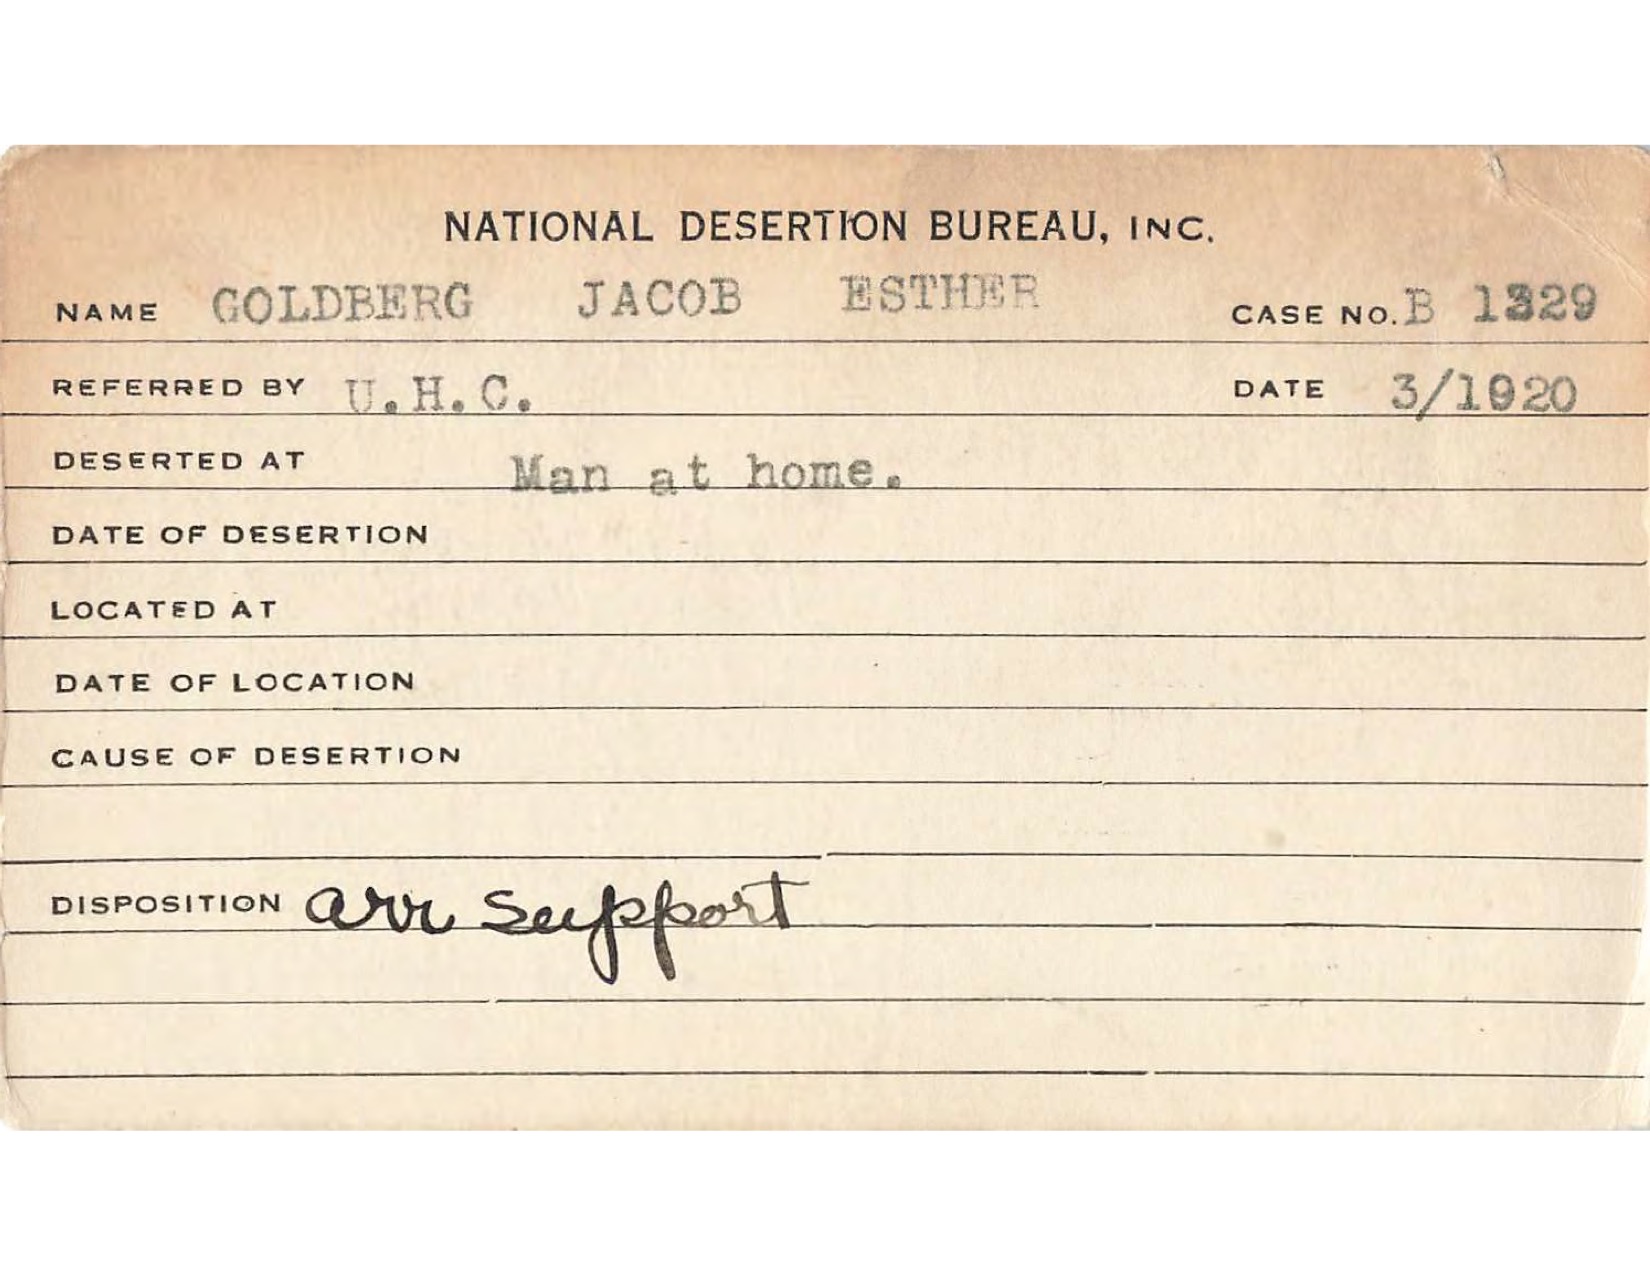 NATIONAL DESERTION BUREAU, INC.
NAME GOLDBERG JACOB ESTHER CASE NO. B 1329
REFERRED BY U.H.C. DATE 3/1920
DESERTED AT Man at home.
DATE OF DESERTION
LOCATED AT
DATE OF LOCATION
CAUSE OF DESERTION
DISPOSITION arr support